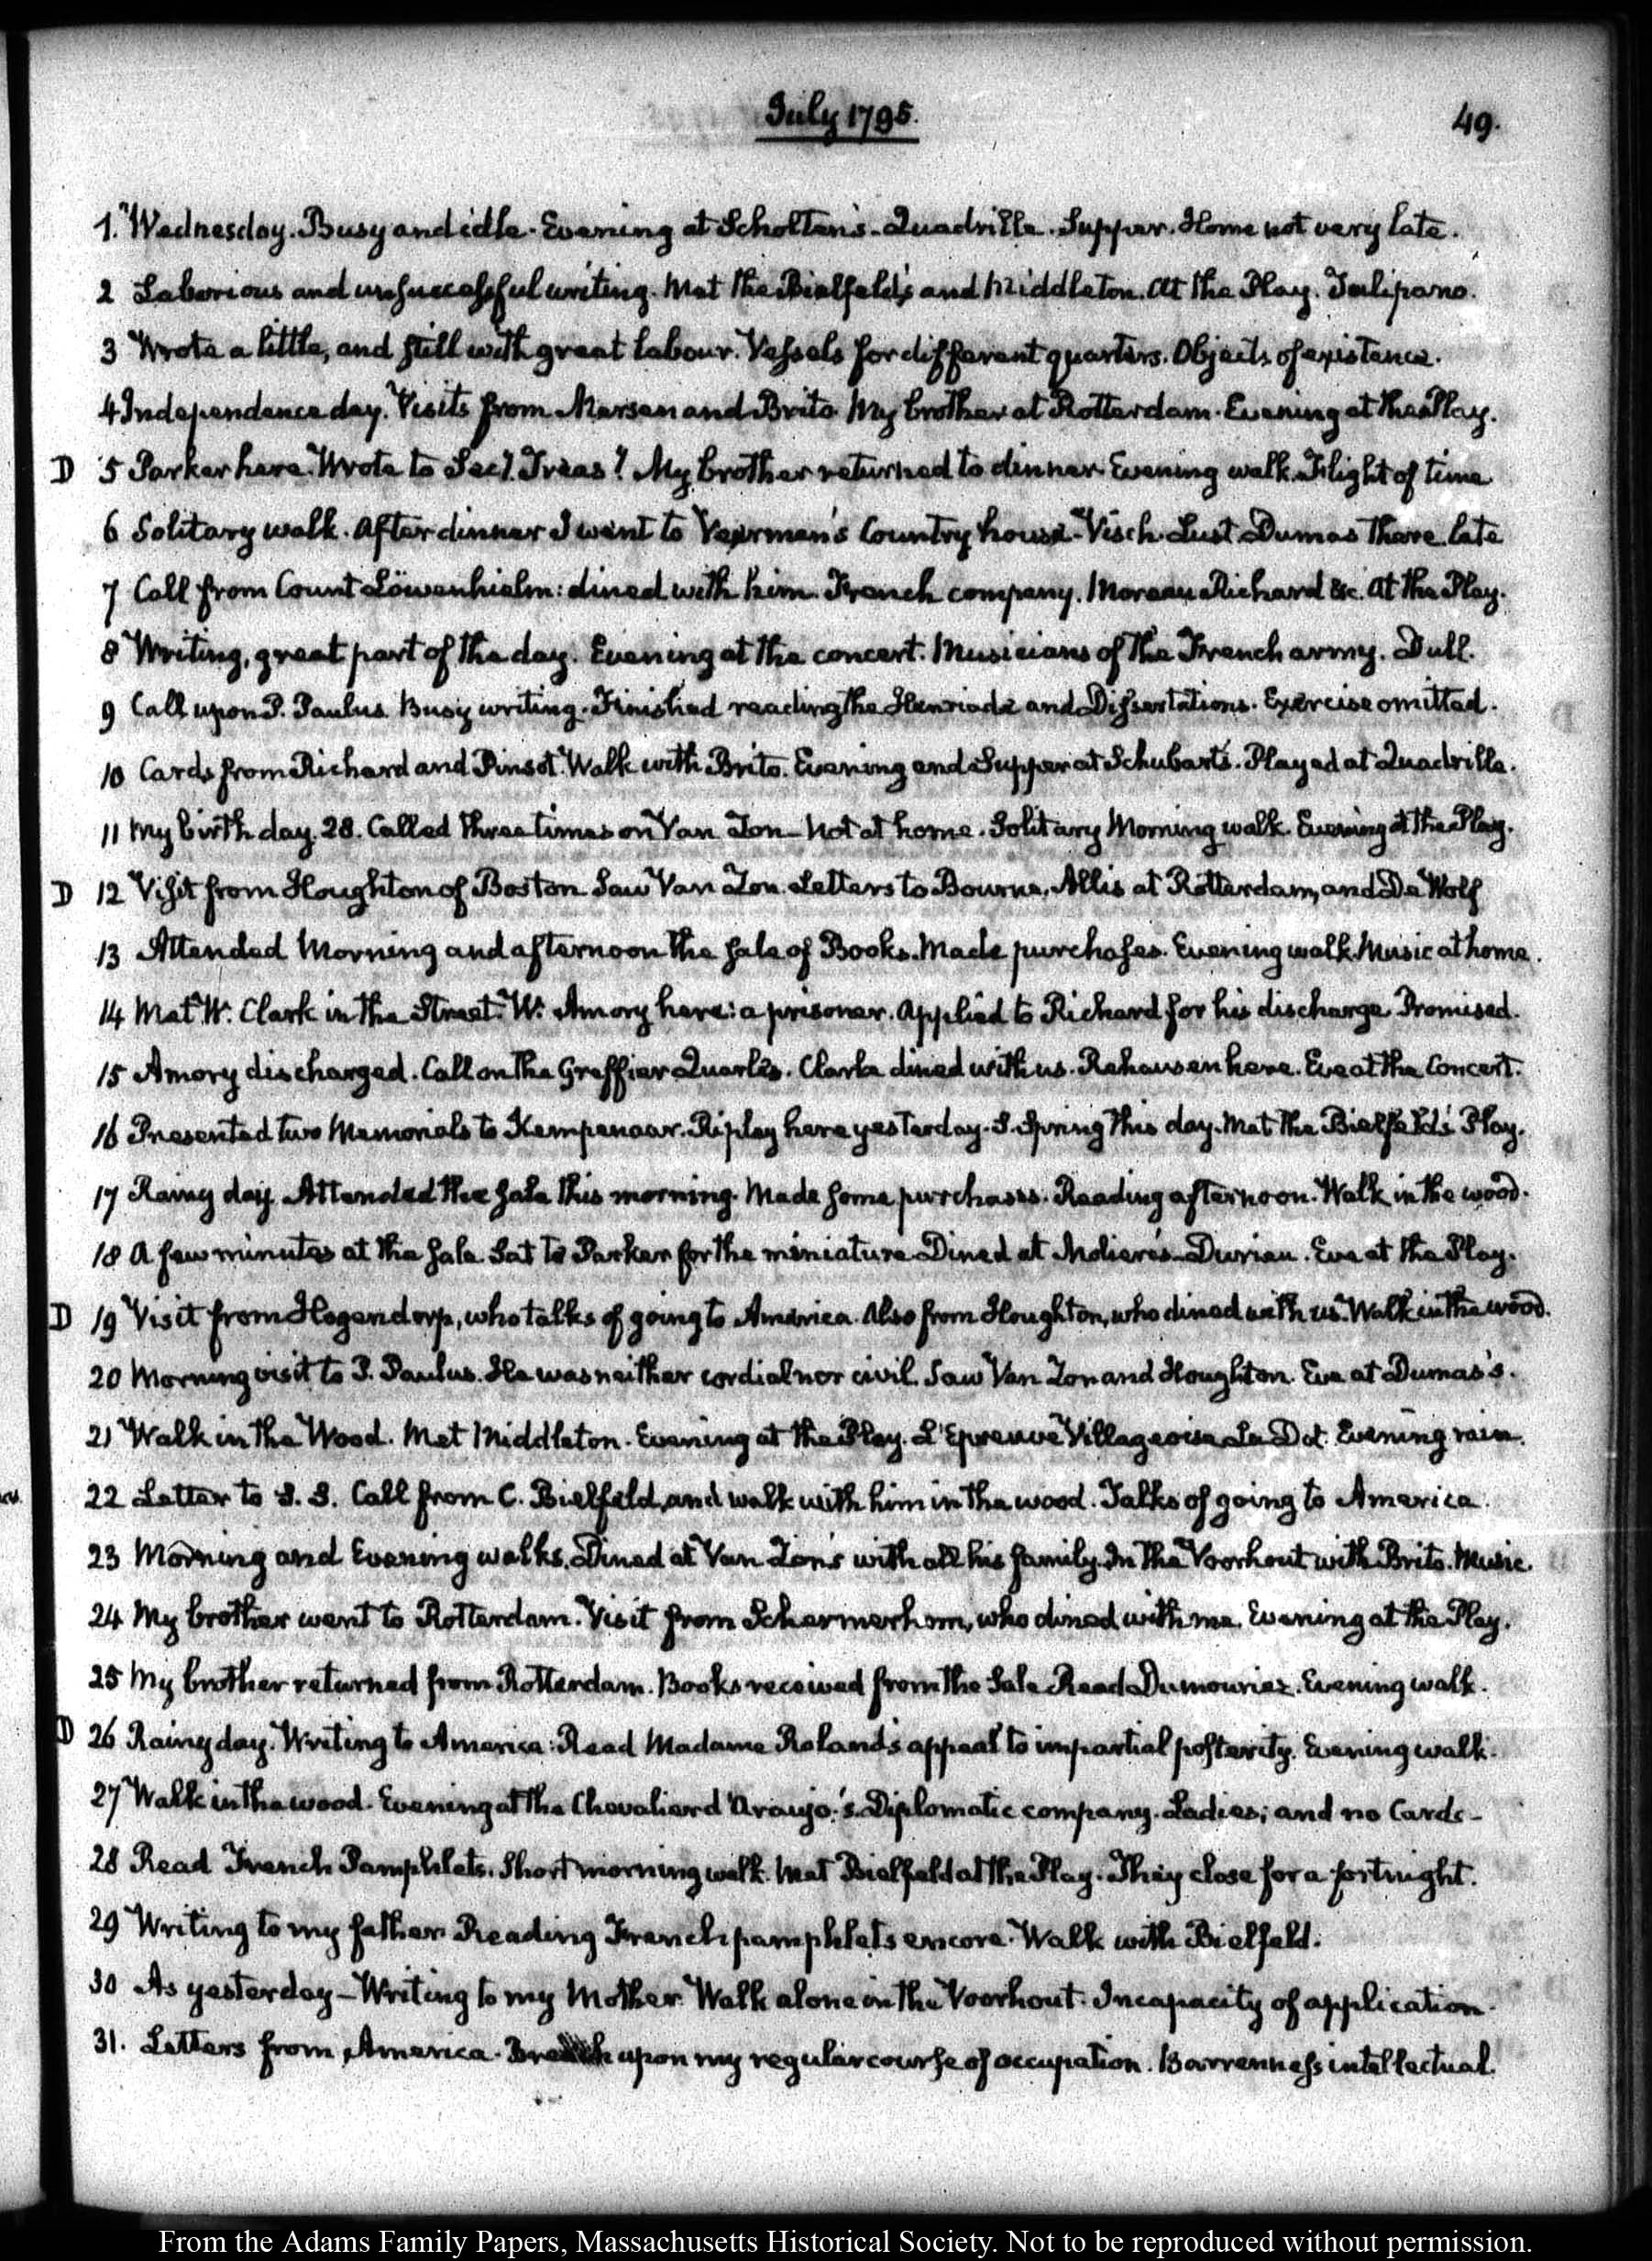 July 1795.
49.
1. Wednesday. Busy and idle. Evening at Scholten's. Quadrille. Supper. Home not very late.
2 Laborious and unsuccessful writing. Met the Bielfeld's and Middleton. At the Play. Tulipano.
3 Wrote a little, and still with great labour. Vessels for different quarters. Objects of existence.
4 Independence day. Visits from Marsen and Brito. My brother at Rotterdam. Evening at the Play.
D 5 Parker here. Wrote to Secy. Treasy. My brother returned to dinner. Evening walk. Flight of time
6 Solitary walk. After dinner I went to Veerman's Country house. Visch Lust. Dumas there. late
7 Call from Count Löwenhielm: dined with him. French company. Moreau Richard &c. At the Play.
8 Writing, great part of the day. Evening at the concert. Musicians of the French army. Dull.
9 Call upon P. Paulus. Busy writing. Finished reading the Henriade and Dissertations. Exercise omitted.
10 Cards from Richard and Pinsot. Walk with Brito. Evening and Supper at Schubart's. Played at Quadrille.
11 My birth day. 28. Called three times on Van Zon - Not at home. Solitary Morning walk. Evening at the Play.
D 12 Visit from Houghton of Boston Saw Van Zon. Letters to Bourne, Allis at Rotterdam, and De Wolf
13 Attended Morning and afternoon the sale of Books. Made purchases. Evening walk. Music at home.
14 Met W. Clark in the Street. W. Amory here: a prisoner. Applied to Richard for his discharge. Promised.
15 Amory discharged. Call on the Greffier Quarles. Clarke dined with us. Rehausen here. Eve at the Concert.
16 Presented two Memorials to Kempenaar. Ripley here yesterday. S. Spring this day. Met the Bielfeld's Play.
17 Rainy day. Attended the sale this morning. Made some purchases. Reading afternoon. Walk in the wood.
18 A few minutes at the sale. Sat to Parker for the miniature. Dined at Moliere's. Durieu. Eve at the Play.
D 19 Visit from Hogendorp, who talks of going to America. Also from Houghton, who dined with us. Walk in the wood.
20 Morning visit to P. Paulus. He was neither cordial nor civil. Saw Van Zon and Houghton. Eve at Dumas's.
21 Walk in the Wood. Met Middleton. Evening at the Play. L'Epreuve Villageoise La Dot. Evening rain.
22 Letter to S. S. Call from C. Bielfeld, and walk with him in the wood. Talks of going to America.
23 Morning and Evening walks. Dined at Van Zon's with all his family. In the Voorhout with Brito. Music.
24 My brother went to Rotterdam. Visit from Schermerhorn, who dined with me. Evening at the Play.
25 My brother returned from Rotterdam. Books received from the Sale. Read Dumouriez. Evening walk.
D 26 Rainy day. Writing to America: Read Madame Roland's appeal to impartial posterity. Evening walk.
27 Walk in the wood. Evening at the Chevalier d'Araujo's. Diplomatic company. Ladies; and no Cards -
28 Read French Pamphlets. Short morning walk. Met Bielfeld at the Play. They close for a fortnight.
29 Writing to my father. Reading French pamphlets encore. Walk with Bielfeld.
30 As yesterday - Writing to my Mother. Walk alone in the Voorhout. Incapacity of application.
31. Letters from America. Breach upon my regular course of occupation. Barrenness intellectual.
From the Adams Family Papers, Massachusetts Historical Society. Not to be reproduced without permission.